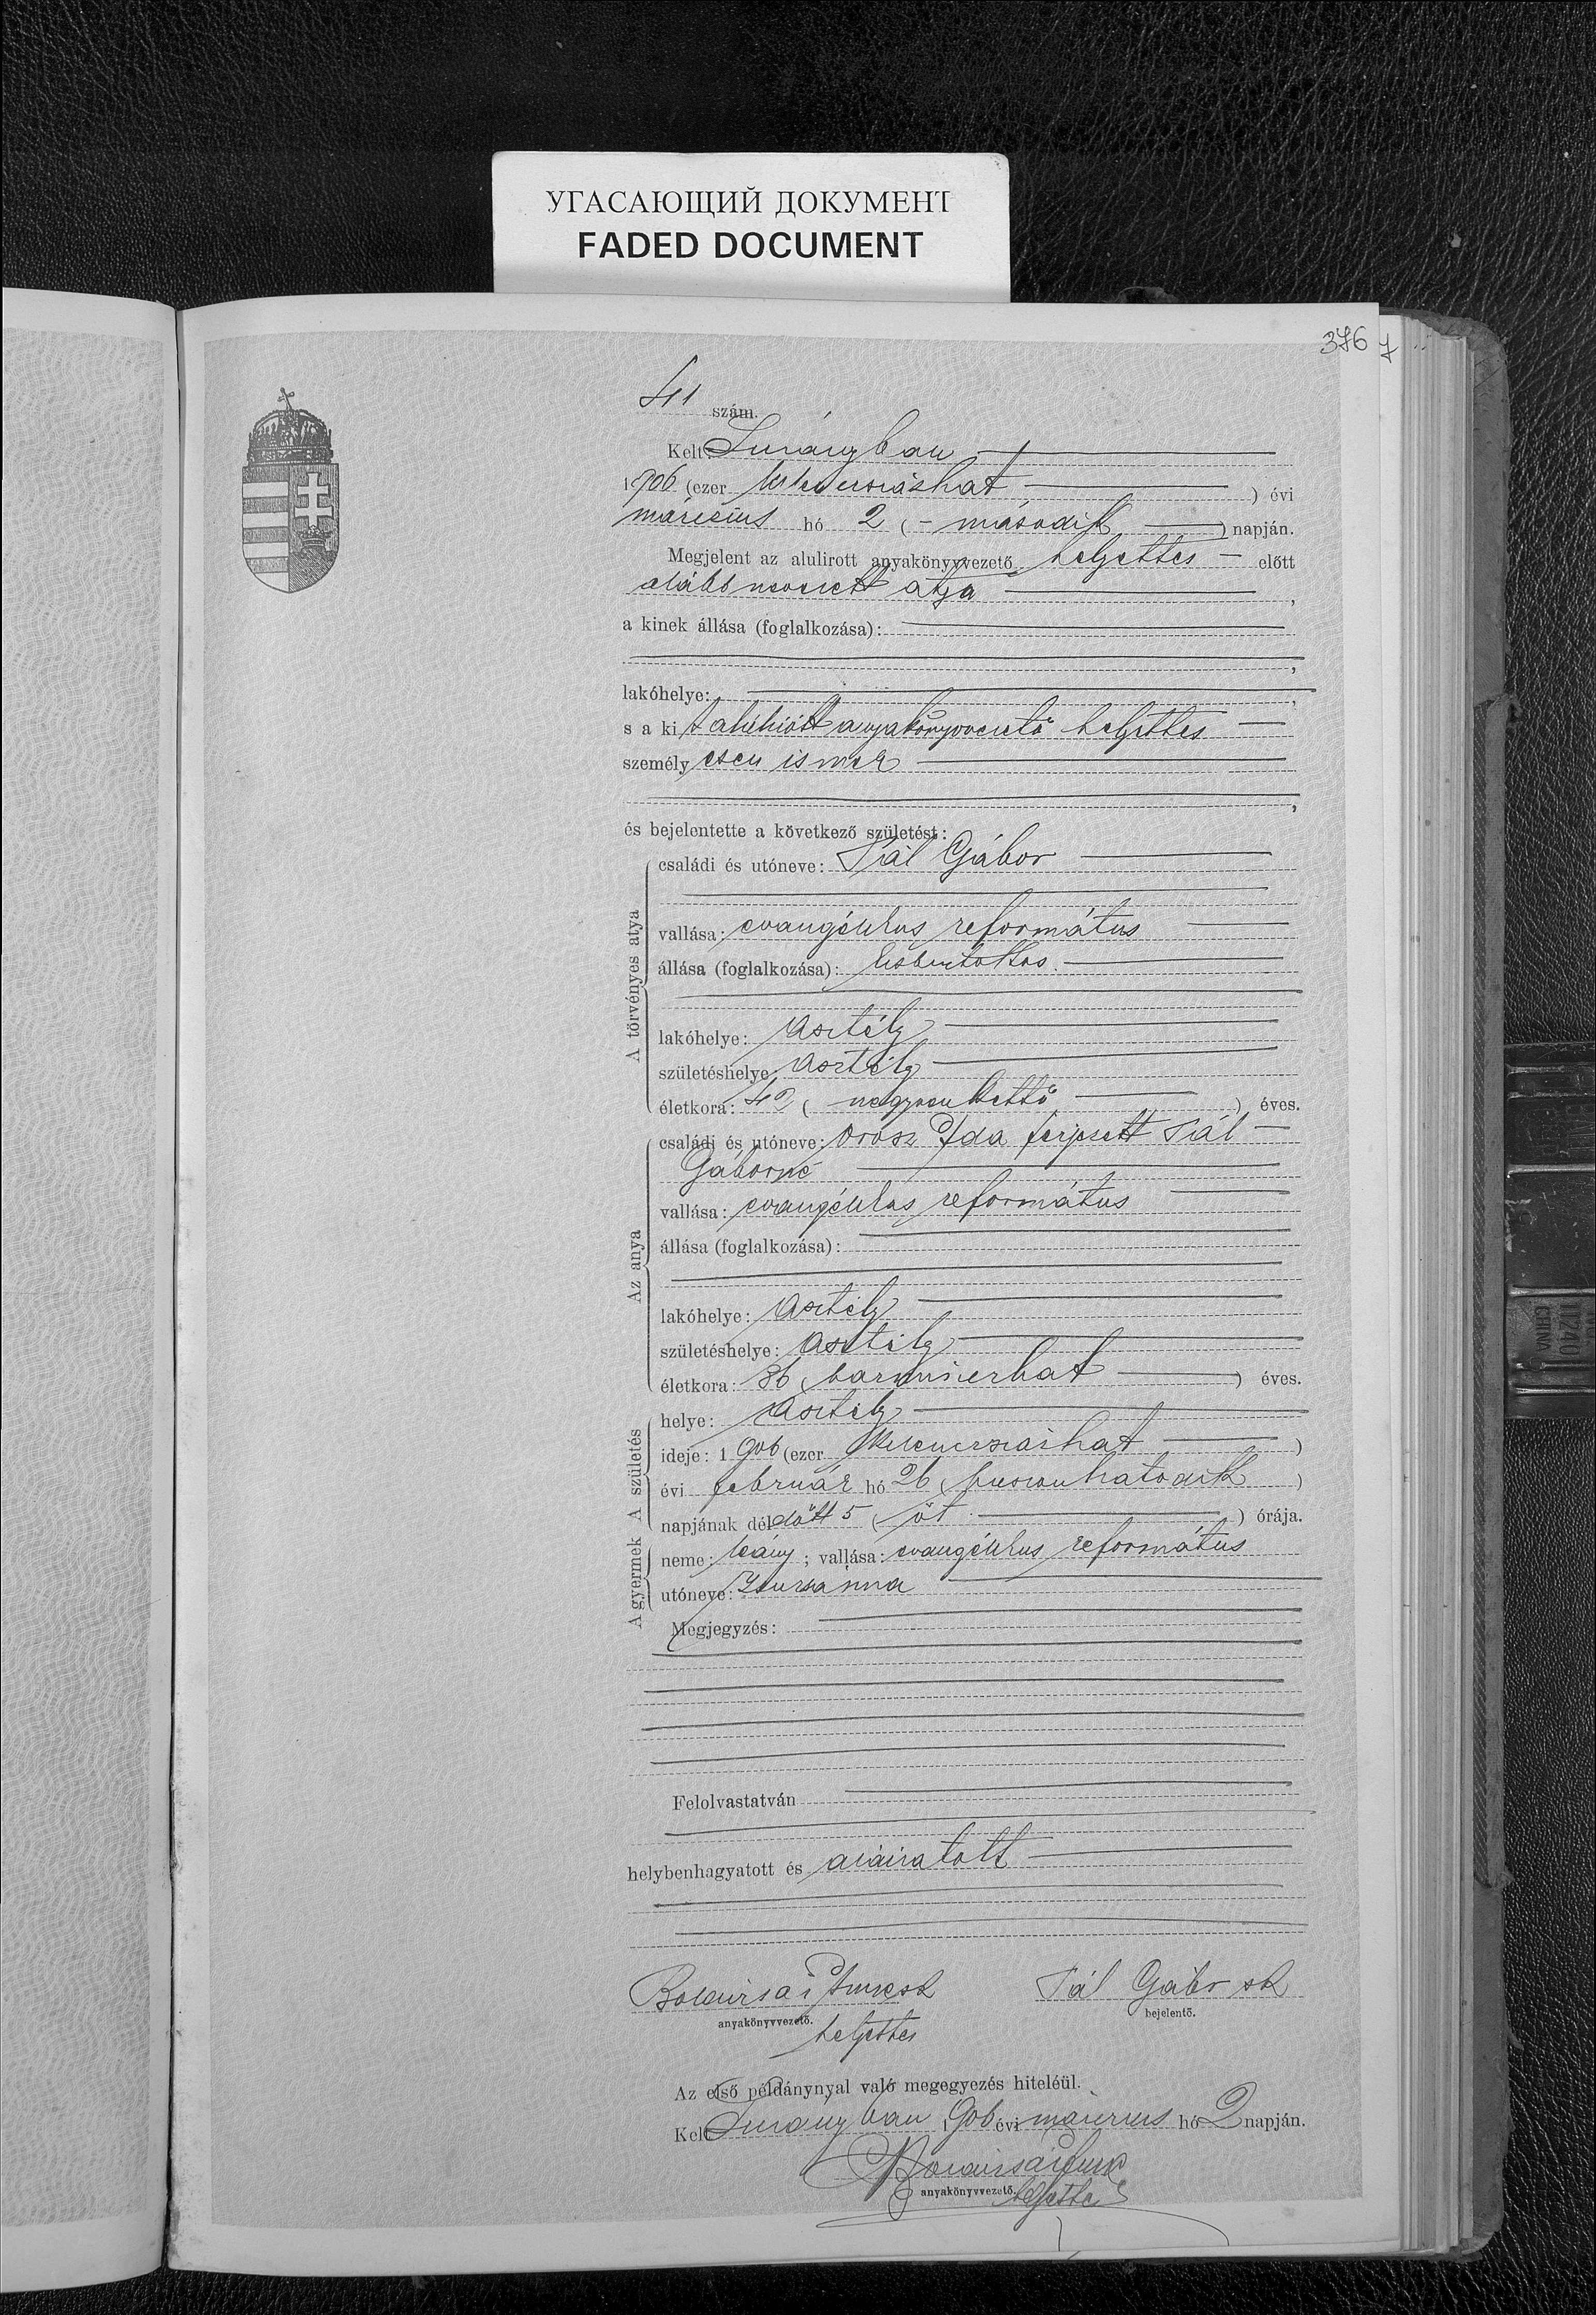 УГАСАЮЩИЙ ДОКУМЕНТ
FADED DOCUMENT
376
41 szám.
Kelt Surányban
1906 (ezer kilenczszázhat) évi
március hó 2 (- második) napján.
Megjelent az alulirott anyakönyvvezető helyettes előtt
alább nevezett atya,
a kinek állása (foglalkozása):
lakóhelye:
s a kit alulirott anyakönyvvezető helyettes
személyesen ismer
és bejelentette a következő születést:
A törvényes atya
családi és utóneve: Pál Gábor
vallása: evangélikus református
állása (foglalkozása): kisbirtokos.
lakóhelye: Asztély
születéshelye: Asztély
életkora: 42 (negyvenkettő) éves.
Az anya
családi és utóneve: Orosz Ida férjezett Pál
Gáborné
vallása: evangélikus református
állása (foglalkozása):
lakóhelye: Asztély
születéshelye: Asztély
életkora: 36 (harminczhat) éves.
A születés
helye: Asztély
ideje: 1906 (ezer kilenczszázhat)
évi február hó 26 (huszonhatodik)
napjának délelőtt 5 (öt) órája.
A gyermek
neme: leány; vallása: evangélikus református
utóneve: Zsuzsánna
Megjegyzés:
Felolvastatván
helybenhagyatott és aláiratott
Pál Gábor sk
anyakönyvvezető. bejelentő.
helyettes
Az első példánynyal való megegyezés hiteléül.
Kelt Surányban 1906 évi március hó 2 napján.
anyakönyvvezető. helyettes